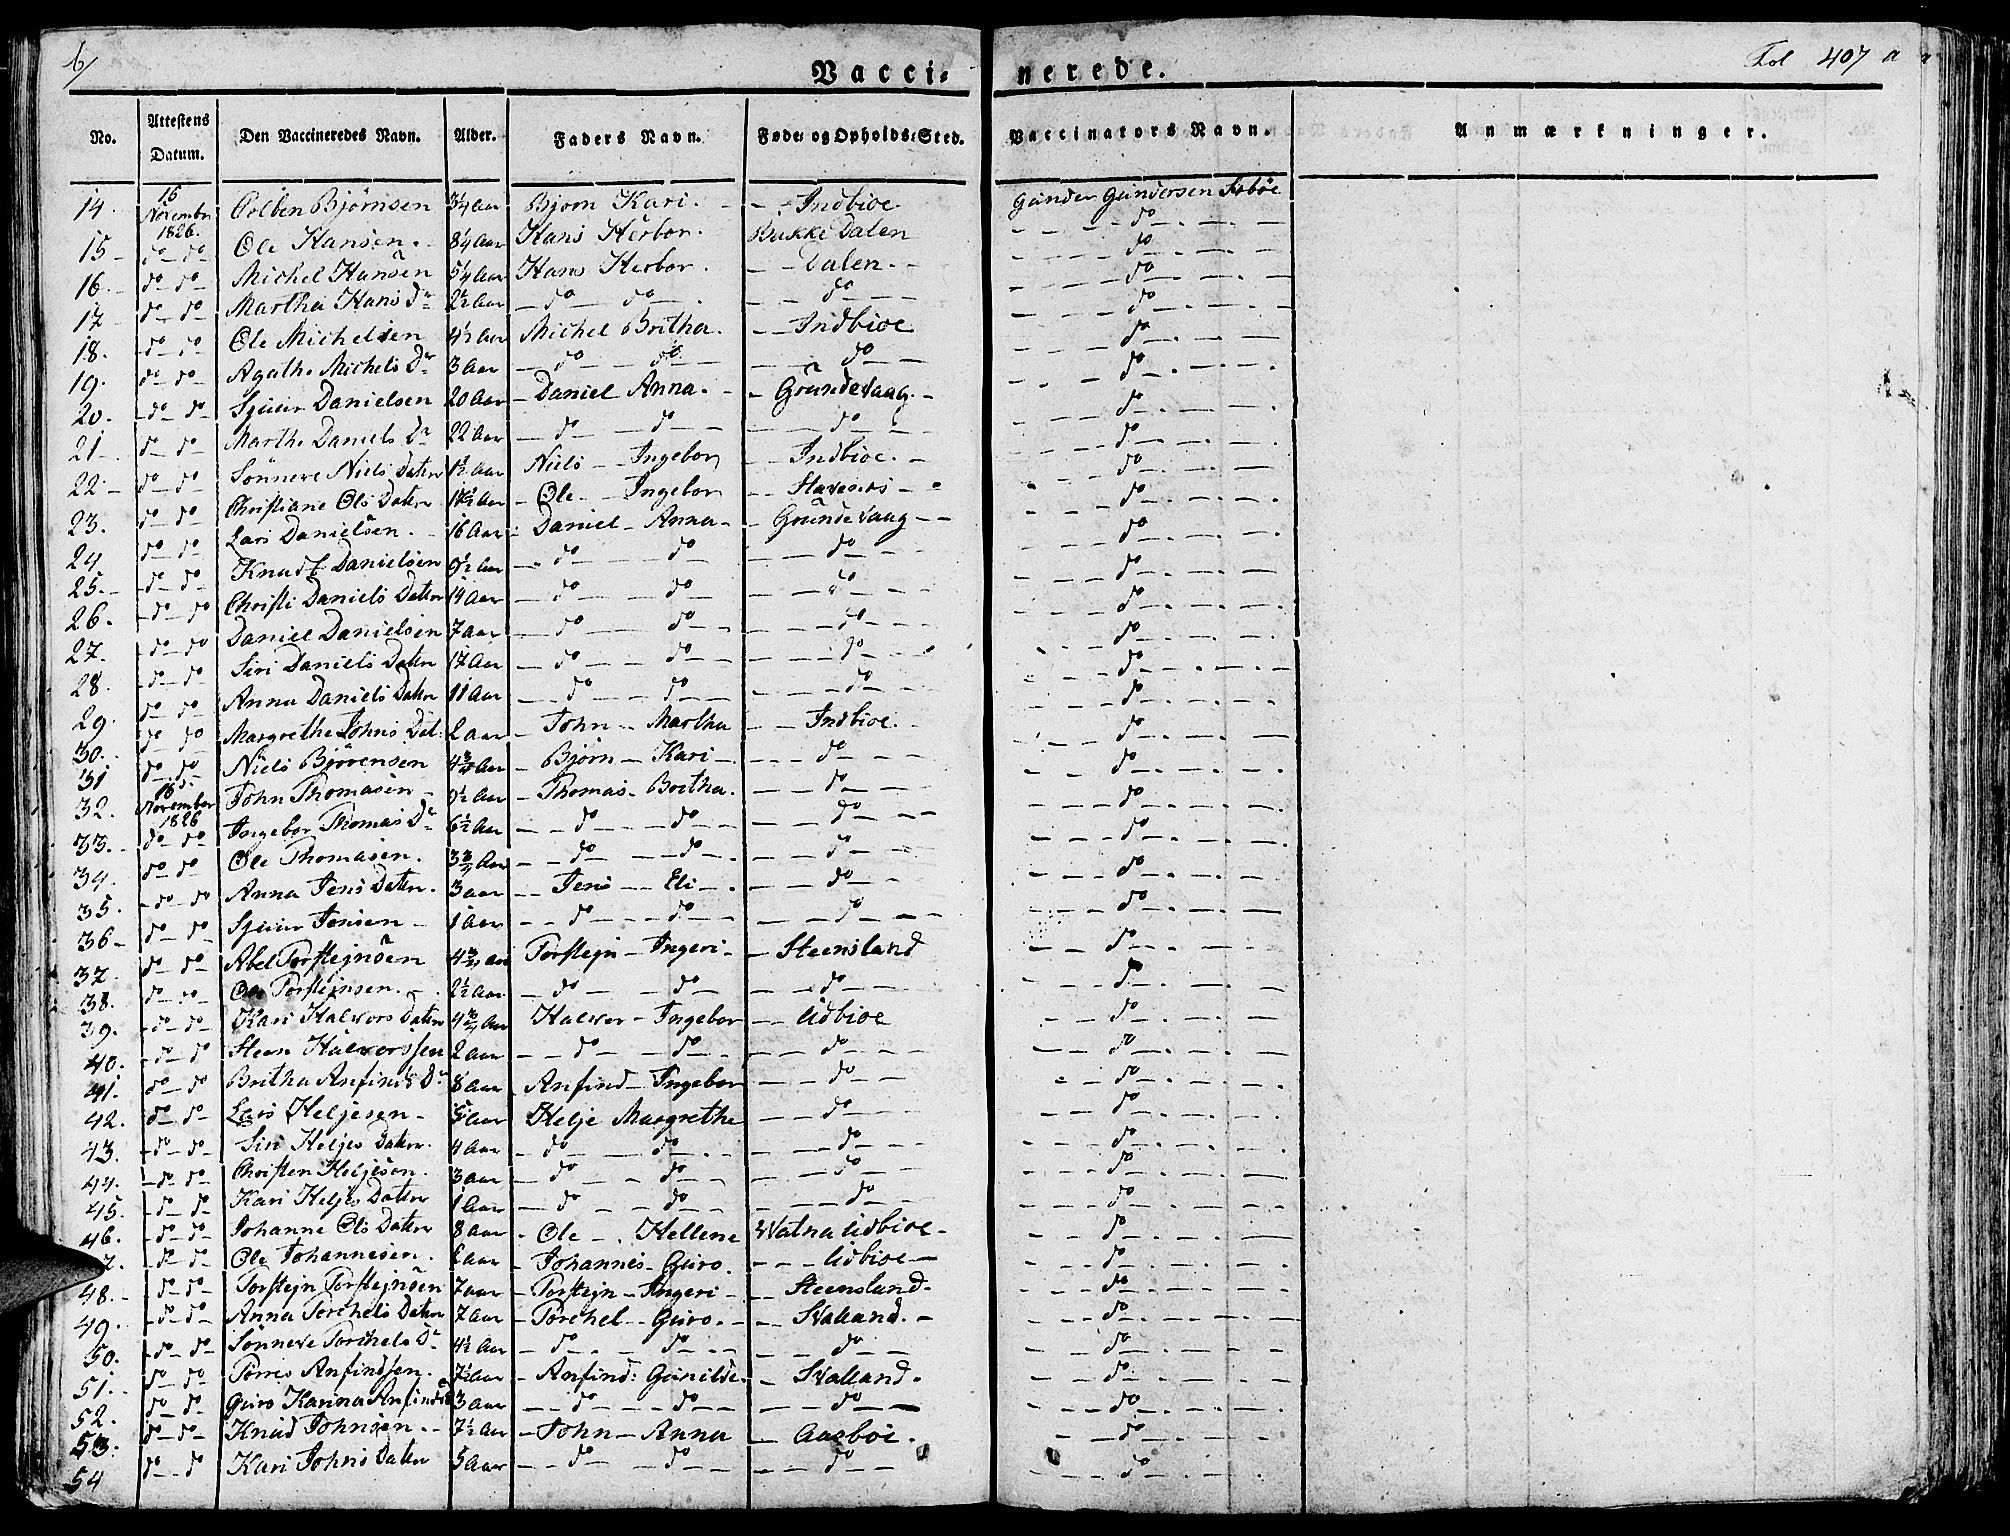 6/ Vacci- nerede. Fol 407 a
No. Attestens Datum. Den Vaccineredes Navn. Alder. Faders Navn. Føde- og Opholds-Sted. Vaccinators Navn. Anmærkninger.
14. 15 November 1826. Colben Bjørnsen 3/4 Aar Bjørn Kari. - - Indbioe Gunder Gundersen
15 - do - do - Ole Hansen. 8 1/4 Aar Hans Herbor. Bukke Dalen do
16. do - do - Michel Hansen 5 1/4 Aar Hans Herbor. - - Dalen. - do
17 do - do - Martha Hans Dr 2 1/2 Aar - do - do - - - do - - do
18. do - do - Ole Michelsen 4 1/2 Aar Michel Britha. - - Indbioe do
19. do - do - Agathe Michels Dr 3 Aar - do - do - - - do - - do
20. - do - do - Sjuur Danielsen 20 Aar - Daniel Anna. - - Grundevaag. - do
21 - do - do - Marthe Daniels Dr 22 Aar - do - do - - - do - - do
22 - do - do - Sønneve Niels Datter 1 1/2 Aar Niels - Ingebor - Indbioe. - do
23. do - do - Christiane Ols Datter Aar - Ole - Ingebor - - do
24 do - do - Lars Danielsen. 16 Aar - Daniel - Anna - - Grundevaag - - do
25. - do - do - Knudt Danielsen 9 1/2 Aar - do - do - - do - do
26. - do - do Christi Daniels Datter 14 Aar - do - do - - do - do
27. - do - do Daniel Danielsen 7 Aar - do - do - - do - do
28. - do - do - Siri Daniels Datter 17 Aar - do - do - - do - do
29. do - do - Anna Daniels Datter 11 Aar - do - do - - do - do
30. do - do - Margrethe Johns Dat: 2 Aar - John - Martha - Indbioe. - do
31 do - do - Niels Bjørensen 4 3/4 Aar - Bjørn - Kari - - do - do
32. 16 November 1826 John Thomasen - 9 1/2 Aar - Thomas - Britha. - - do - do
33. - do - do - Ingebor Thomas Dr 6 1/2 Aar - do - do - - do - do
34. do - do - Ole Thomasen. 3 3/4 Aar - do - do - - do - do
35. - do - do Anna Jens Datter. 3 Aar - Jens - Eli - - do - do
36 - do - do - Sjuur Jensen - 1 Aar - do - do - - do - do
37. do - do - Abel Torstejnsen 4 3/4 Aar Torstejn - Ingeri - - Steensland do
38. do - do - Ole Torstejnsen. 2 1/2 Aar - do - do - - do - do
39. - do - do - Kari Halvors Datter 4 3/4 Aar Halvor - Ingebor - - Udbioe do
40. - do - do Steen Halvorssen 2 Aar - do - do - - do - do
41. do - do Britha Anfinds Dr 8 Aar - Anfind - Ingebor - - do - do
42. do - do - Lars Heljesen - 5 Aar Helje Margrethe - do - do
43. - do - do - Siri Heljes Datter. 4 Aar - do - do. - - do - do
44. - do - do - Christen Heljesen. 3 Aar - do - do - - do - do
45. - do - do - Kari Heljes Datter 1 Aar - do - do - - do - do
46. - do - do - Johanne Ols Datter 8 Aar - Ole - Hellene Watna Udbioe - do
7. - do - do - Ole Johannesen. 2 Aar - Johannes - Guro. - - Udbioe - do
48. - do - do - Torstejn Torstejnsen 7 Aar - Torstejn - Ingeri - - Steensland - do
49. - do - do - Anna Torchels Datter 7 Aar - Torchel - Guro. - - Svalland. - do
50. - do - do - Sønneve Torchels Dr 4 1/2 Aar - do - do - - do - do
51. - do - do - Torres Anfindsen. 7 1/2 Aar - Anfind: Gunilde. - Svalland. do
52. do - do - Guro Karina Anfinds 3 Aar - do - do - - do - do
53. do - do - Knud Johnsen. - 7 1/2 Aar - John - Anna - Aasbøe. do
54 do - do Kari Johns Datter 5 Aar - do - do - - do - do